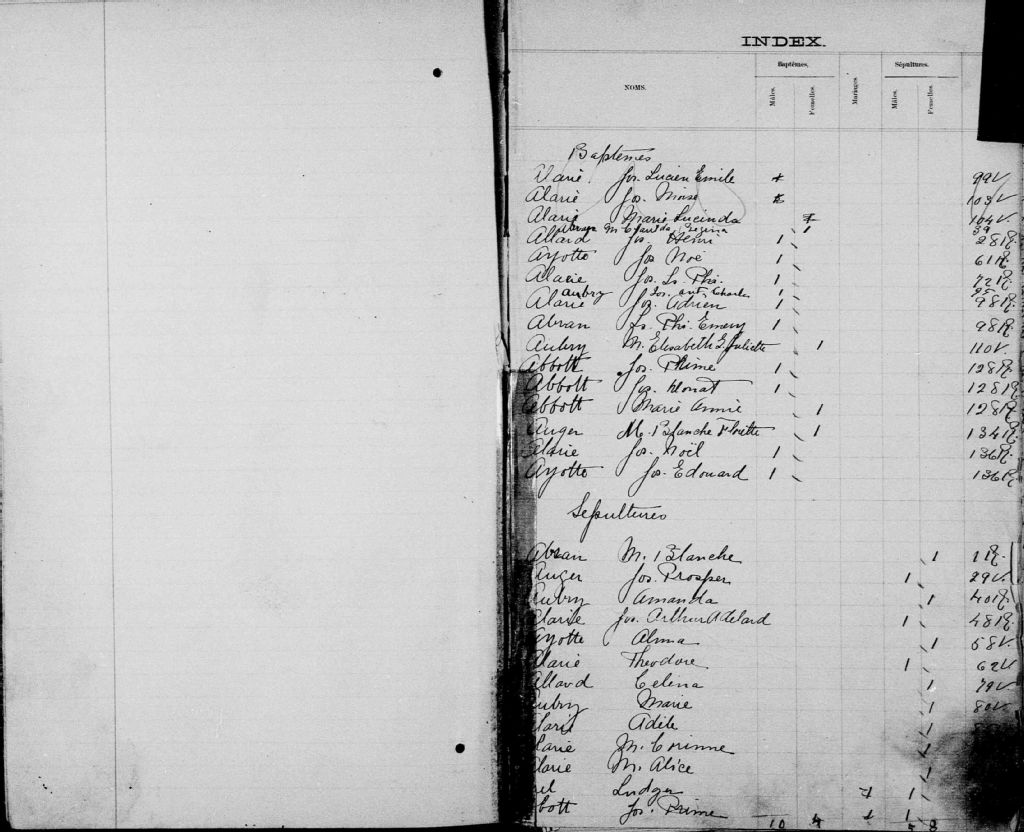 INDEX.
NOMS. Baptêmes. Mâles. Femelles. Mariages Sépultures. Mâles. Femelles.
Baptêmes
Alarie Jos. Lucien Emile 99V.
Alarie Jos. Moise 103V
Alarie Marie Lucinda 104V.
39
Allard Jos. Henri 1 28R.
Ayotte Jos Noé 1 61R.
Alarie Jos. Ls. Phi. 1 72R.
Aubry Jos. ant. Charles 1 95
Alarie Jos. Adrien 1 98R.
Abran Ls. Phi. Emery 1 98R
Aubry M. Elisabeth G. Juliette 1 110V.
Abbott Jos. Phime 1 128R.
Abbott Jos. Donat 1 128R
Abbott Marie Annie 1 128R
Auger M. Blanche Floriette 1 134R.
Alarie Jos. Noël 1 136R.
Ayotte Jos. Edouard 1 136R
Sépultures
Abran M. Blanche 1 1R.
Auger Jos. Prosper 1 29V.
Aubry Amanda 1 40R.
Alarie Jos. Arthur Adelard 1 48R.
Ayotte Alma 1 58V.
Alarie Theodore 1 62V
Allard Celina 1 79V
Aubry Marie 1 80V.
Alarie Adèle 1
Alarie M. Corinne 1
Alarie M. Alice 1
Ludger 1 1
bott Jos. Prime 1 1
10 4